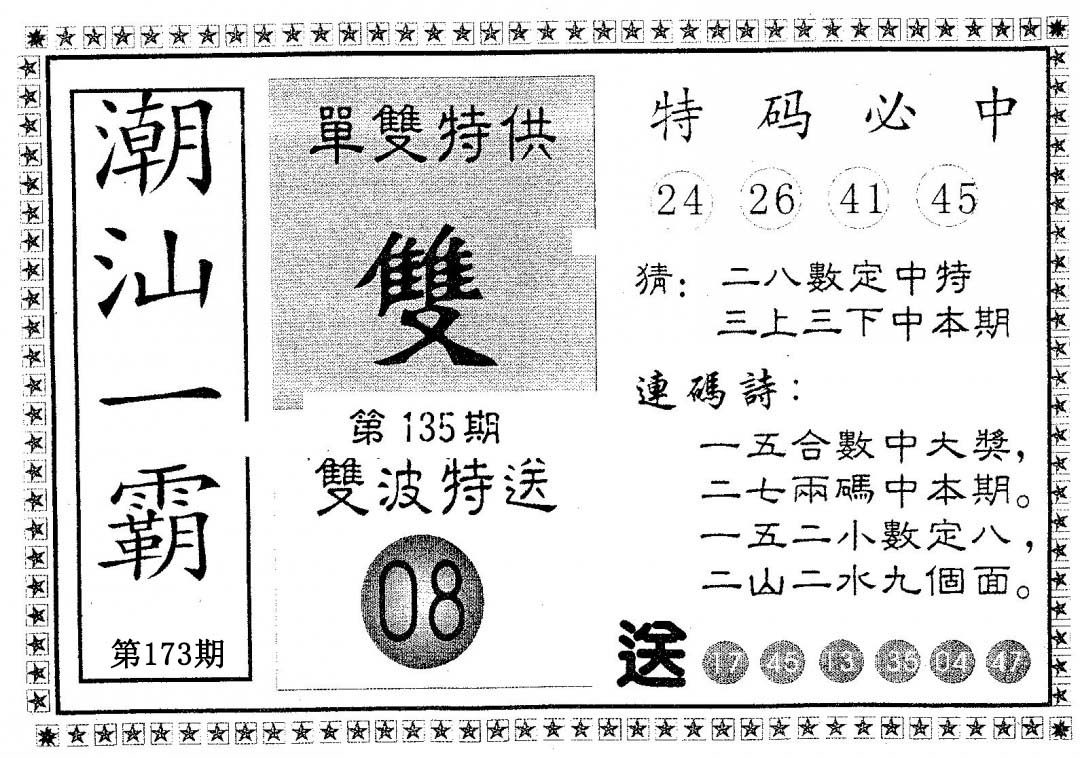 潮汕一霸
第173期
單雙特供
雙
第135期
雙波特送
08
特码必中
24 26 41 45
猜：二八數定中特
三上三下中本期
連碼詩：
一五合數中大獎，
二七兩碼中本期。
一五二小數定八，
二山二水九個面。
送 17 45 13 35 04 47